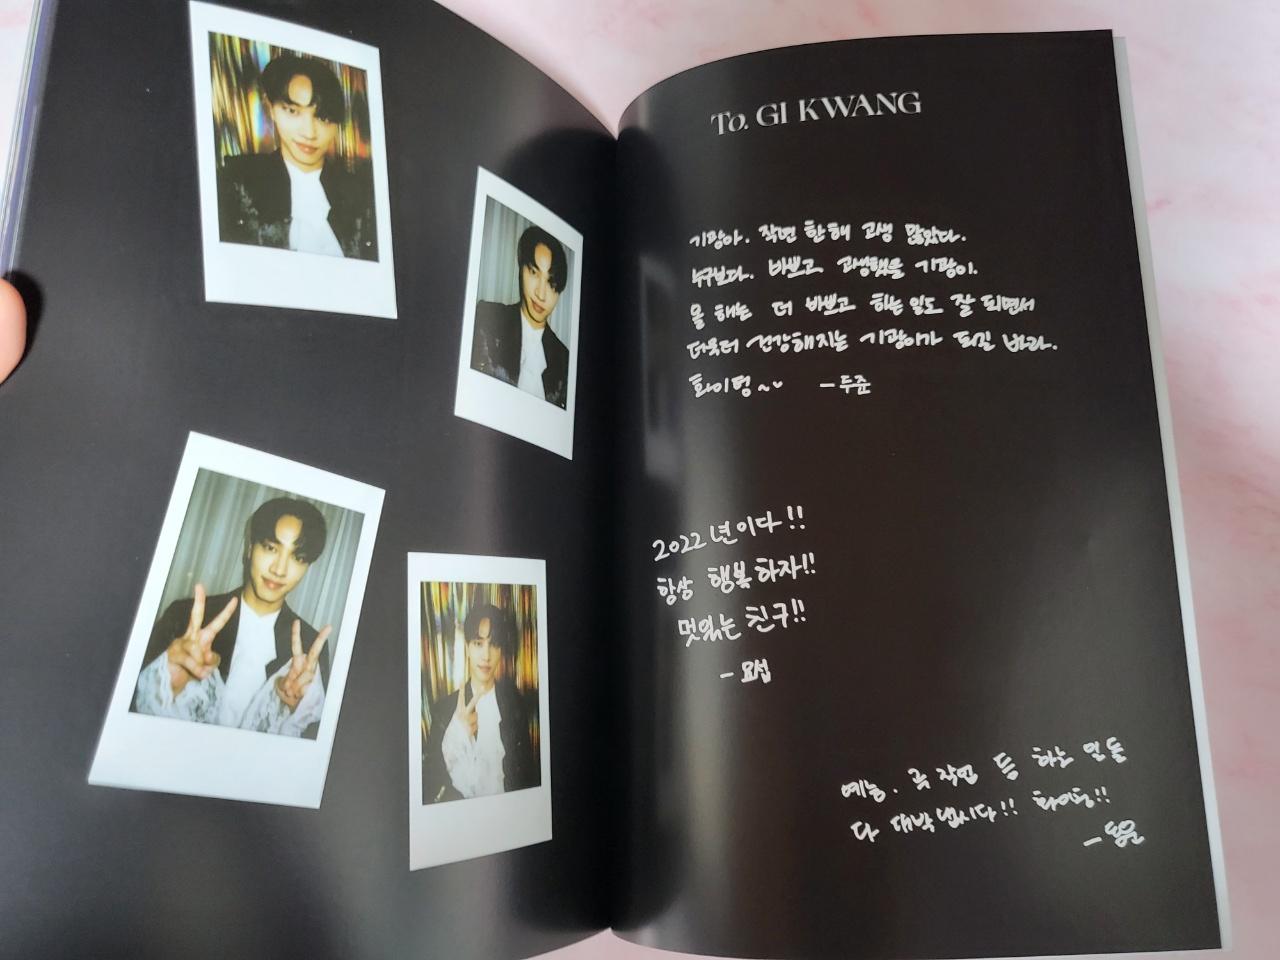 To. GI KWANG
기광아. 작년 한해 고생 많았다.
누구보다. 바쁘고 고생했을 기광이.
올 해는 더 바쁘고 하는 일도 잘 되면서
더욱더 건강해지는 기광이가 되길 바라.
화이텅~ -두준
2022년이다!!
항상 행복하자!!
멋있는 친구!!
- 요섭
예능. 곡 작업 등 하는 일들
다 대박 냅시다!! 화이팅!!
- 동운